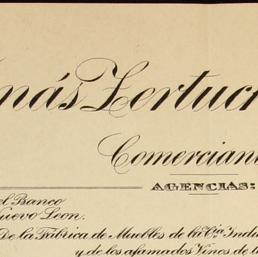 nás Zertuch
Comercian
AGENCIAS:
el Banco
Nuevo Leon.
De la Fábrica de Muebles de la Cía. Indu
y de los afamados Vinos de l